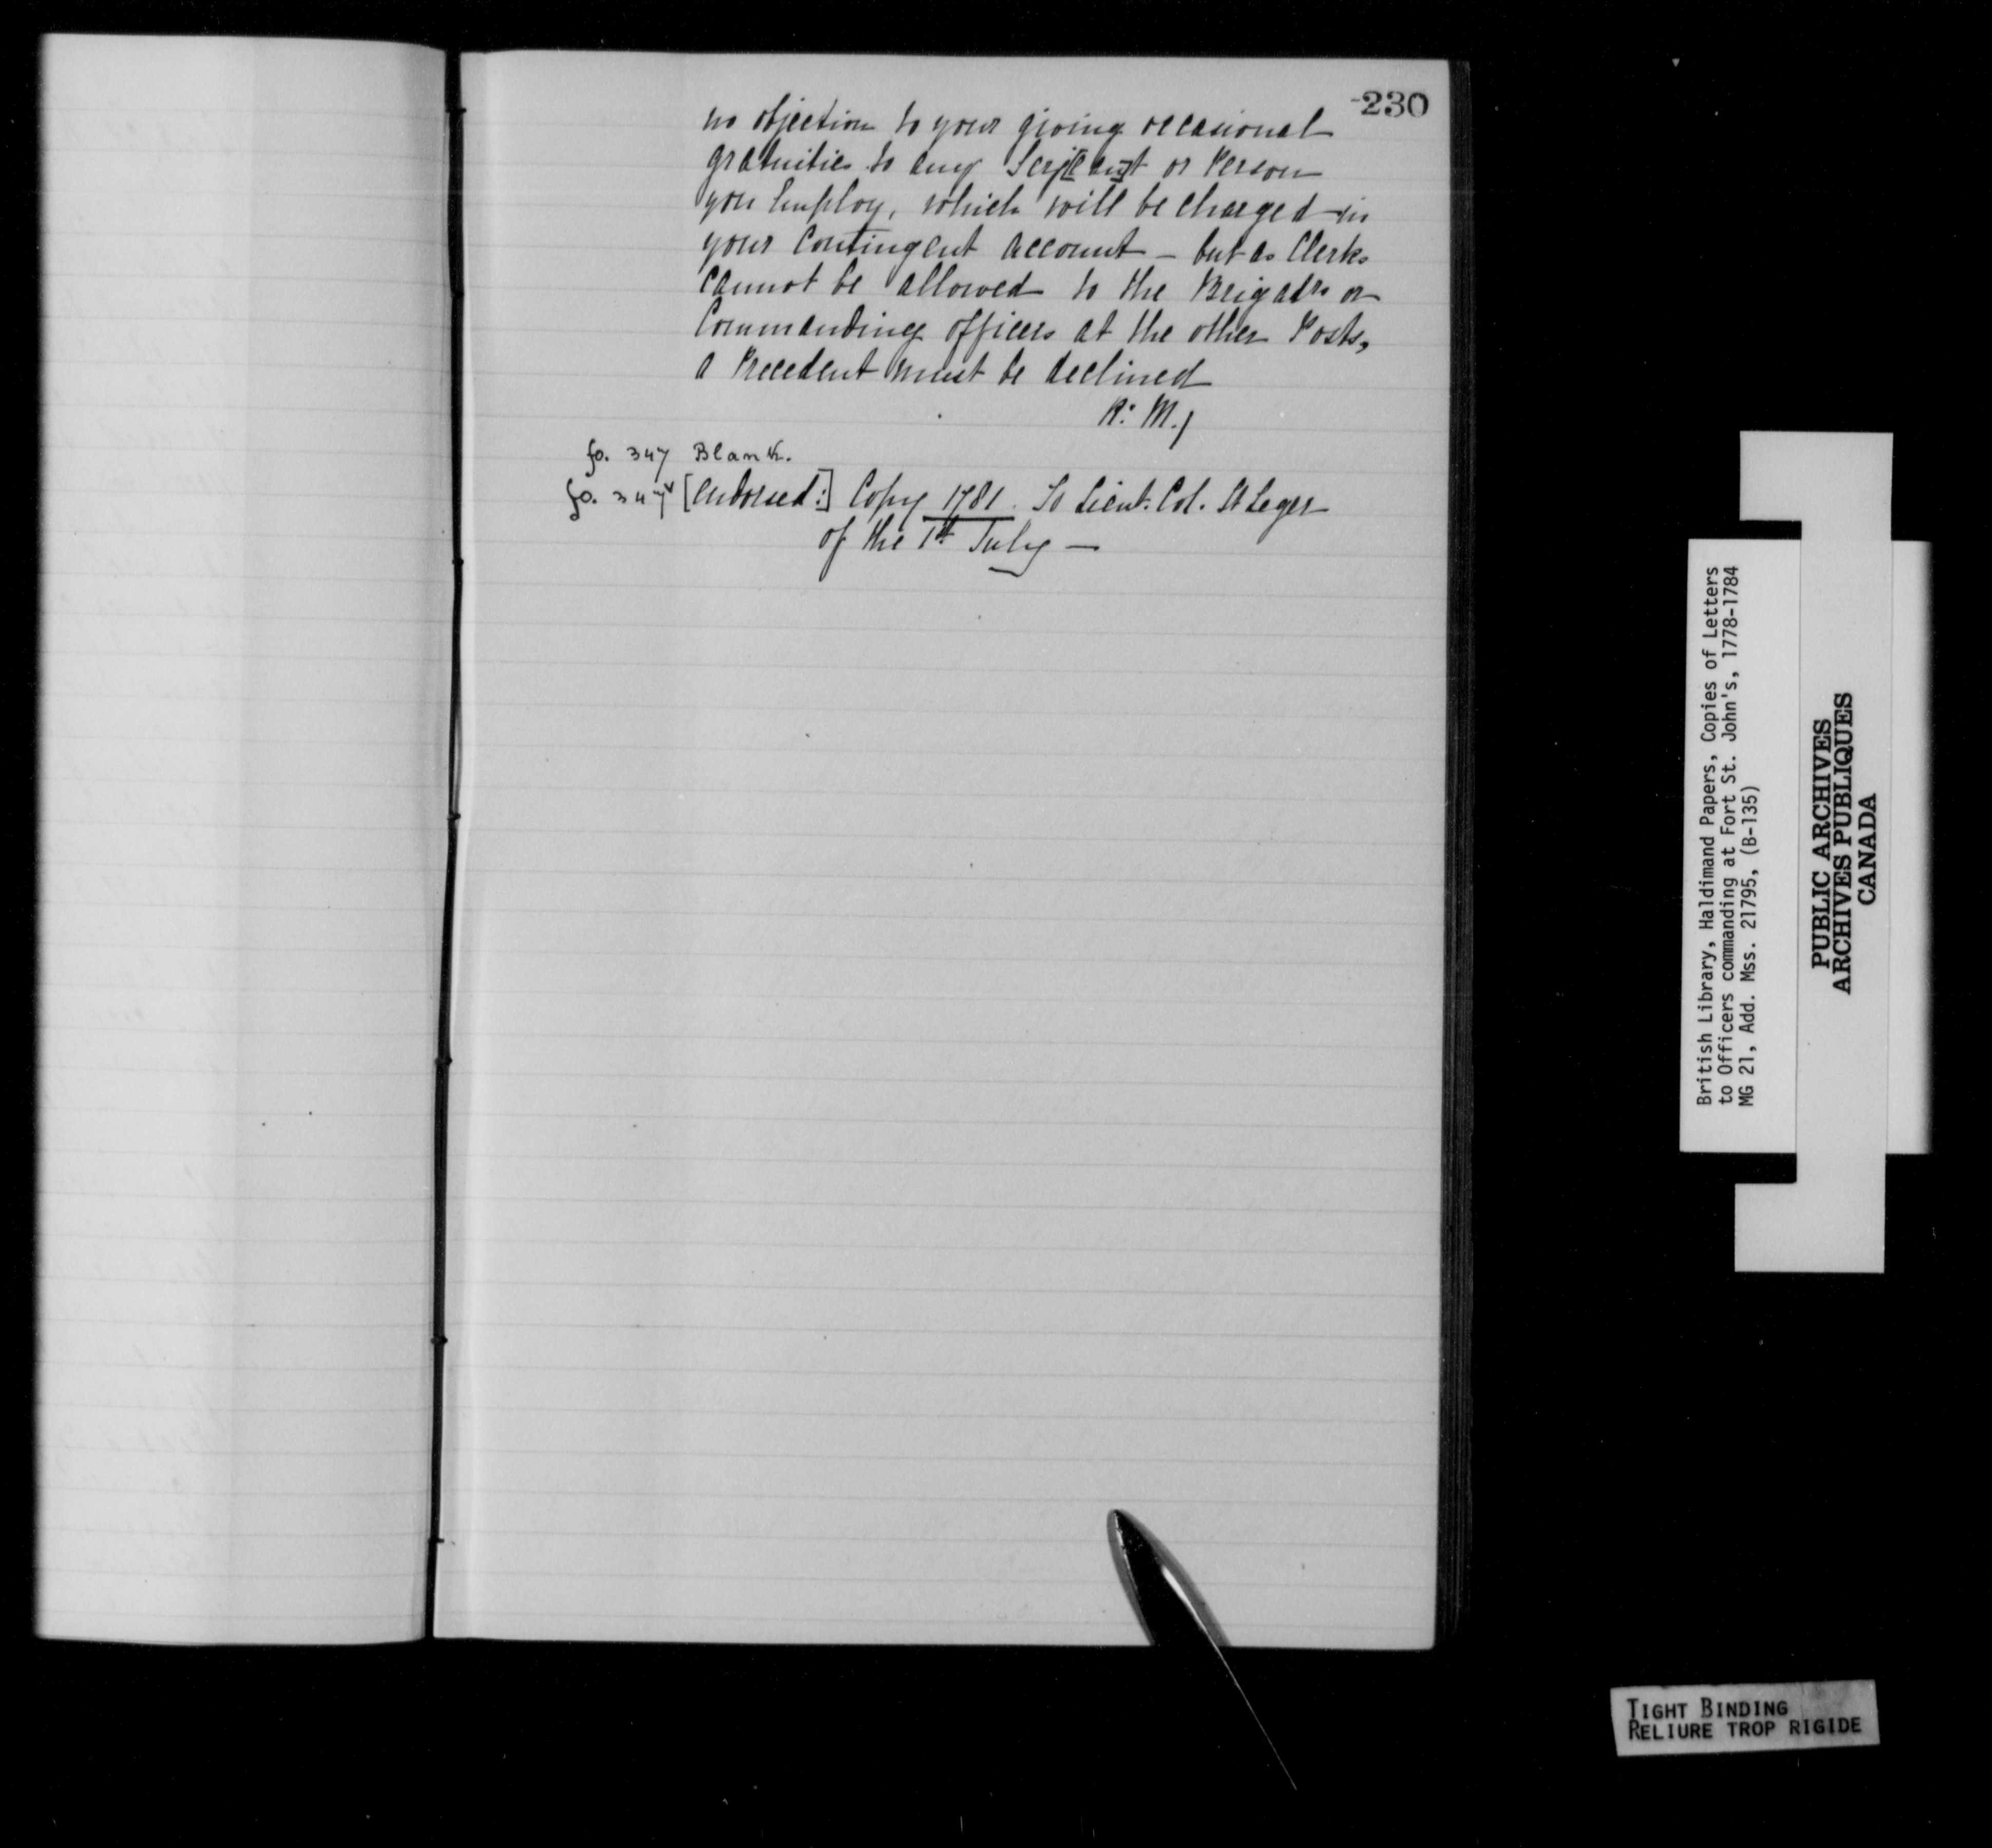 230
no objection to your giving occasional
gratuities to any Serj[ean]t or Person
you Employ, which will be charged in
your Contingent Account – but as Clerks
cannot be allowed to the Brigadrs or
Commanding officers at the other Posts,
a Precedent must be declined
R: M./
fo. 347 Blank.
fo. 347v [Endorsed:] Copy 1781. To Lieut. Col. St Leger
of the 1st July —
British Library, Haldimand Papers, Copies of Letters
to Officers commanding at Fort St. John's, 1778-1784
MG 21, Add. Mss. 21795, (B-135)
PUBLIC ARCHIVES
ARCHIVES PUBLIQUES
CANADA
TIGHT BINDING
RELIURE TROP RIGIDE